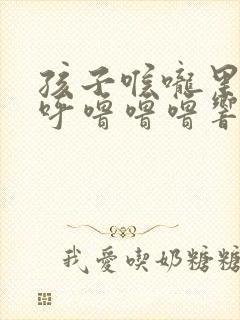 孩子喉嚨里
呼嚕嚕嚕響
我愛喫奶糖糖